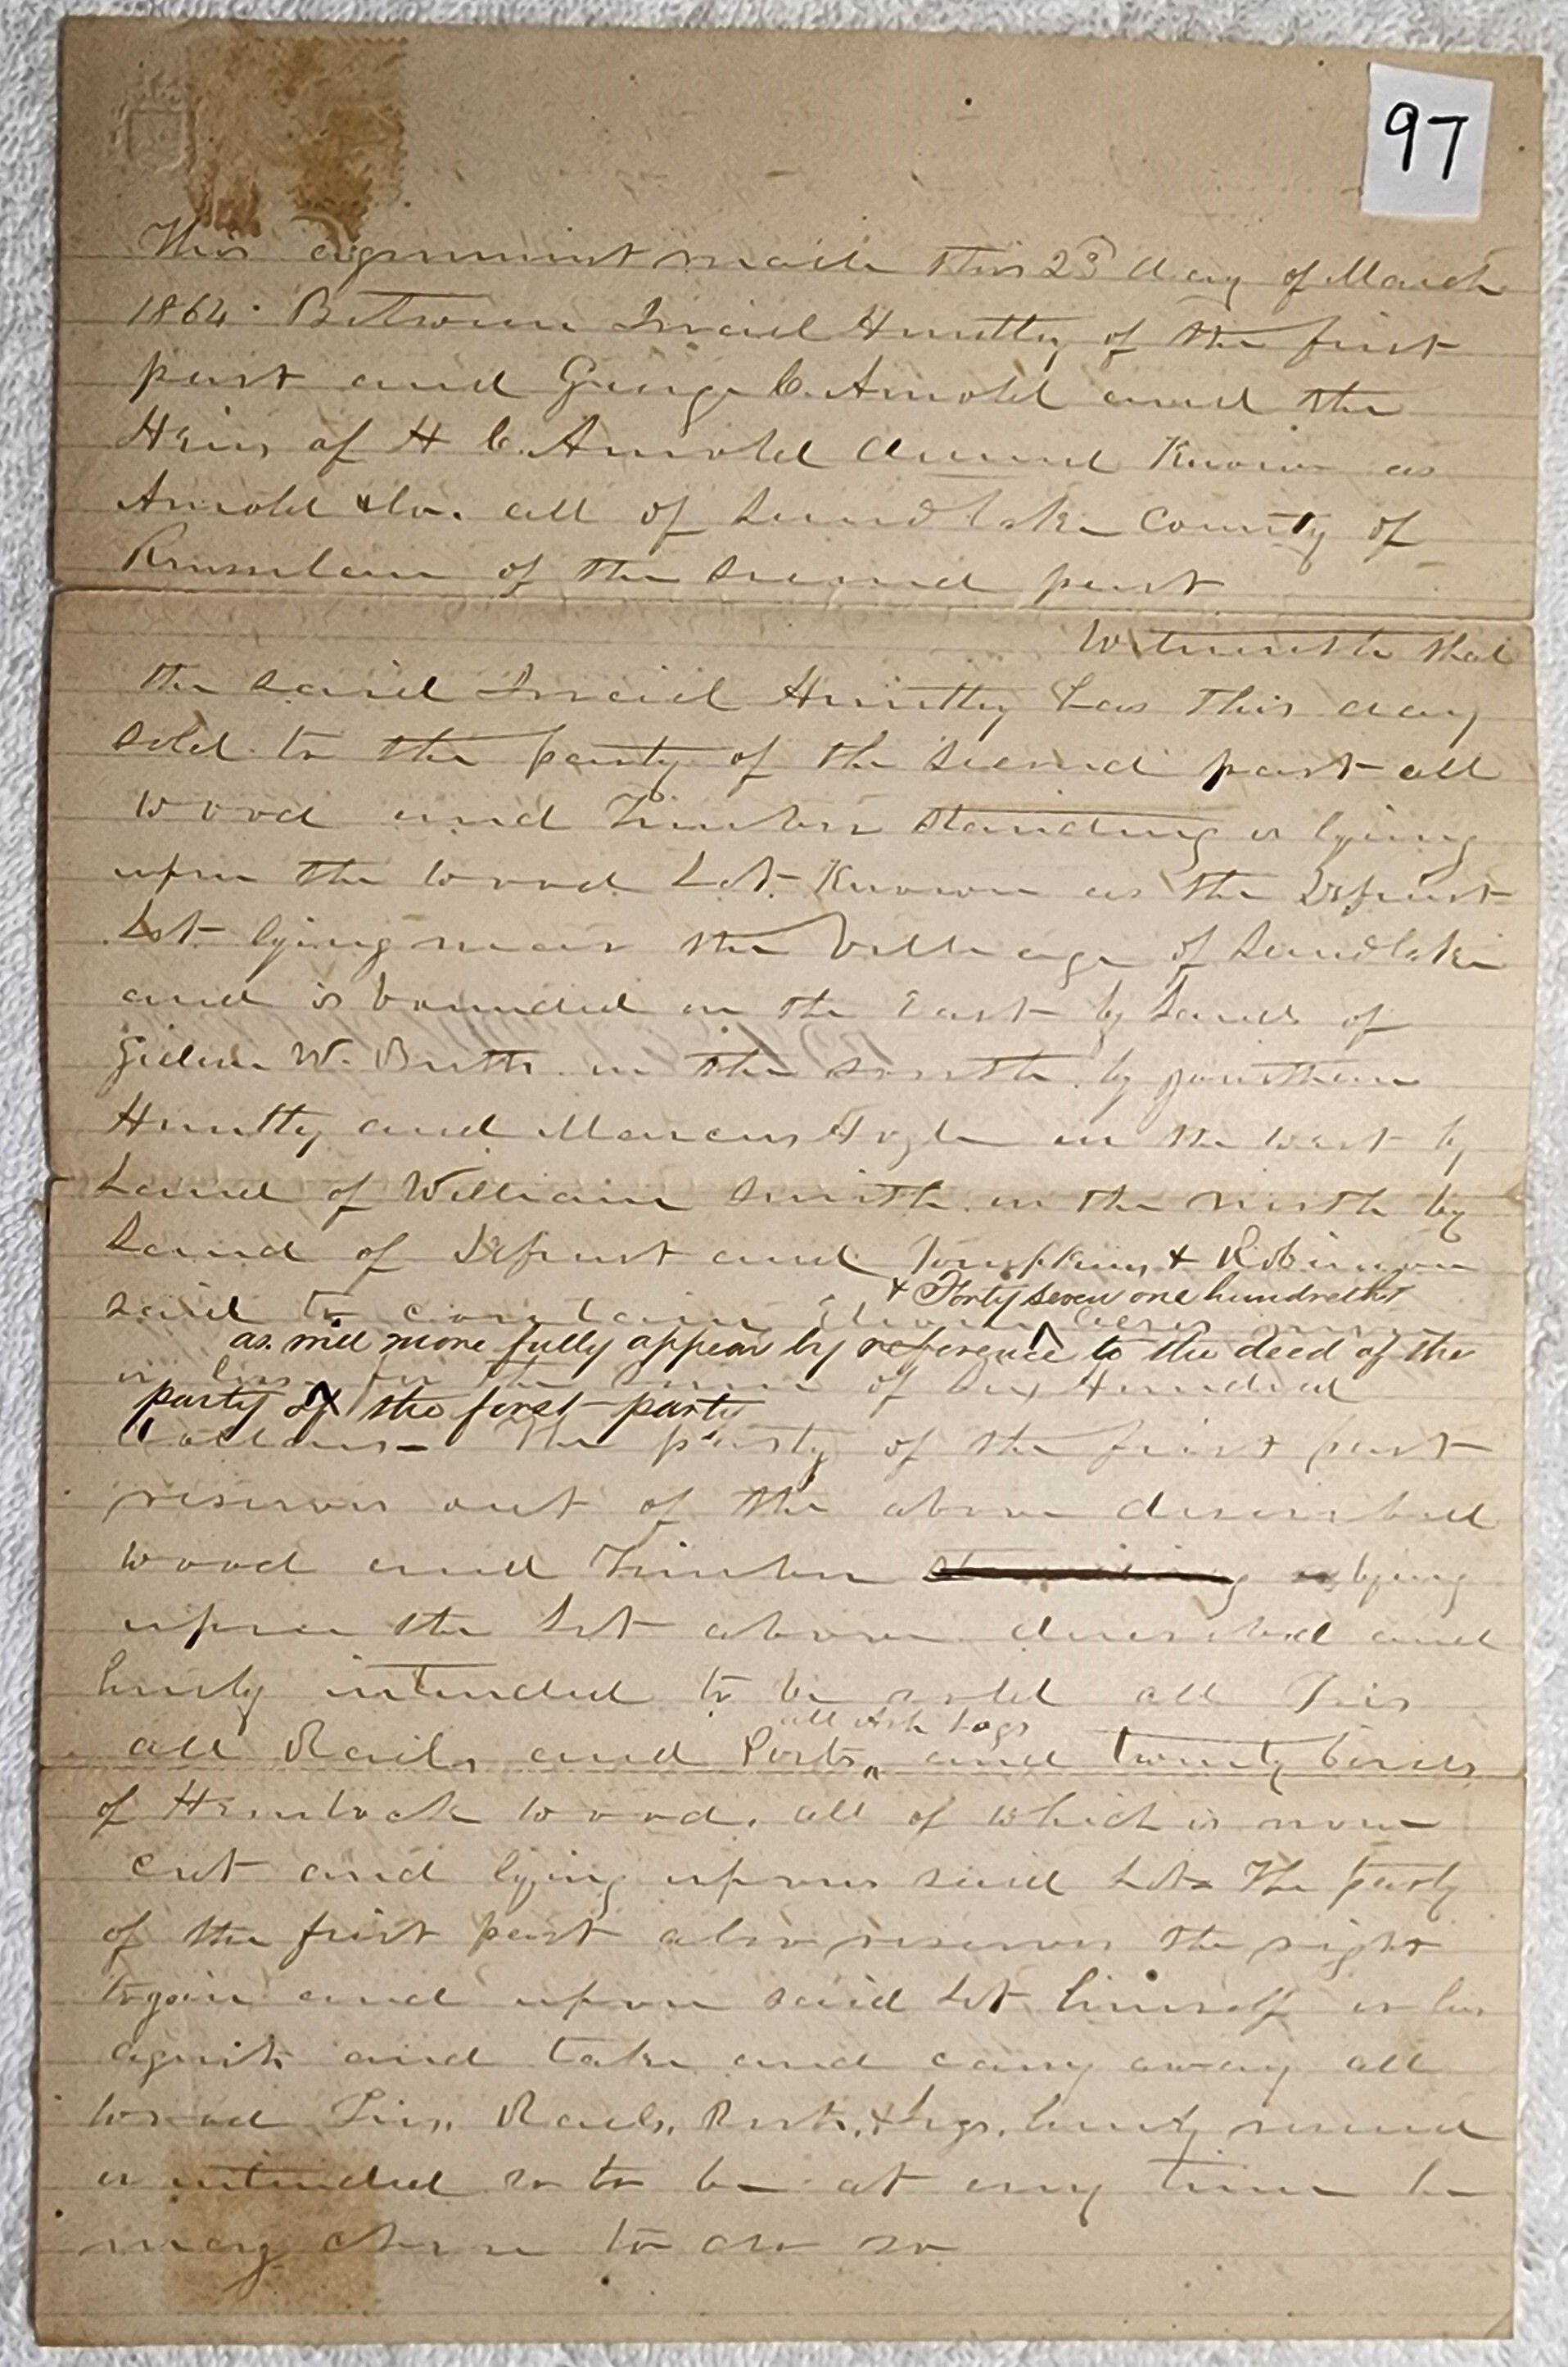 97
This agreement made this 23d day of March
1864. Between Israel Huntly of the first
part and George C. Arnold and the
Heirs of H C. Arnold Known as
Arnold & Co. all of Sandlake County of
Rensselaer of the Second part
Witnesseth that
the said Israel Huntly has this day
sold to the party of the second part all
wood and Timber standing or lying
upon the wood Lot Known as the Defreest
Lot lying near the Village of Sandlake
and is bounded on the East by Lands of
Gideon W. Butts on the south by Jonathan
Huntly and Marcus on the west by
Land of William Smith on the north by
Land of Defreest and Tompkins & Robinson
& Forty seven one hundredths
said to contain Acres more
as will more fully appear by reference to the deed of the
or less for the sum of Six Hundred
party of the first party
Dollars - The party of the first part
reserves out of the above described
wood and Timber standing or lying
upon the Lot above described and
hereby intended to be sold all Ties
all Ash Logs
all Rails and Posts and twenty Cords
of Hemlock wood. all of which is now
cut and lying upon said Lot The party
of the first part also reserves the right
to go in and upon said Lot himself or his
agents and take and carry away all
wood Ties, Rails, Posts, & Logs, hereby reserved
or intended so to be at any time he
may chose to do so